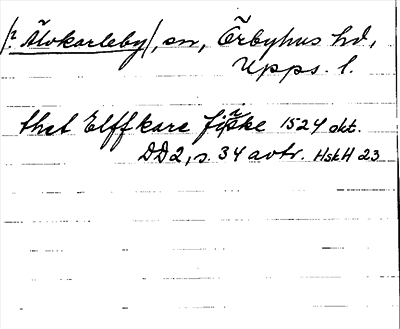 /? Älvkarleby/, sn, Örbyhus hd,
Upps. l.
thet Elffkare fiske 1524 okt.
DD2, s. 34 avtr. HskH 23